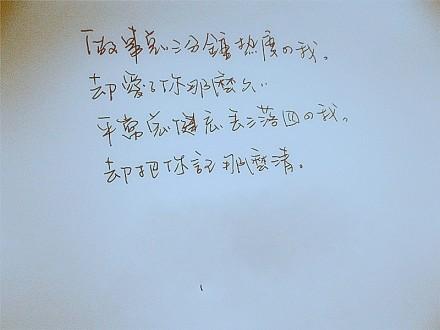 「做事总三分鐘热度の我。
却愛了你那麼久..
平常总健忘丢三落四の我。
却把你記那麼清。